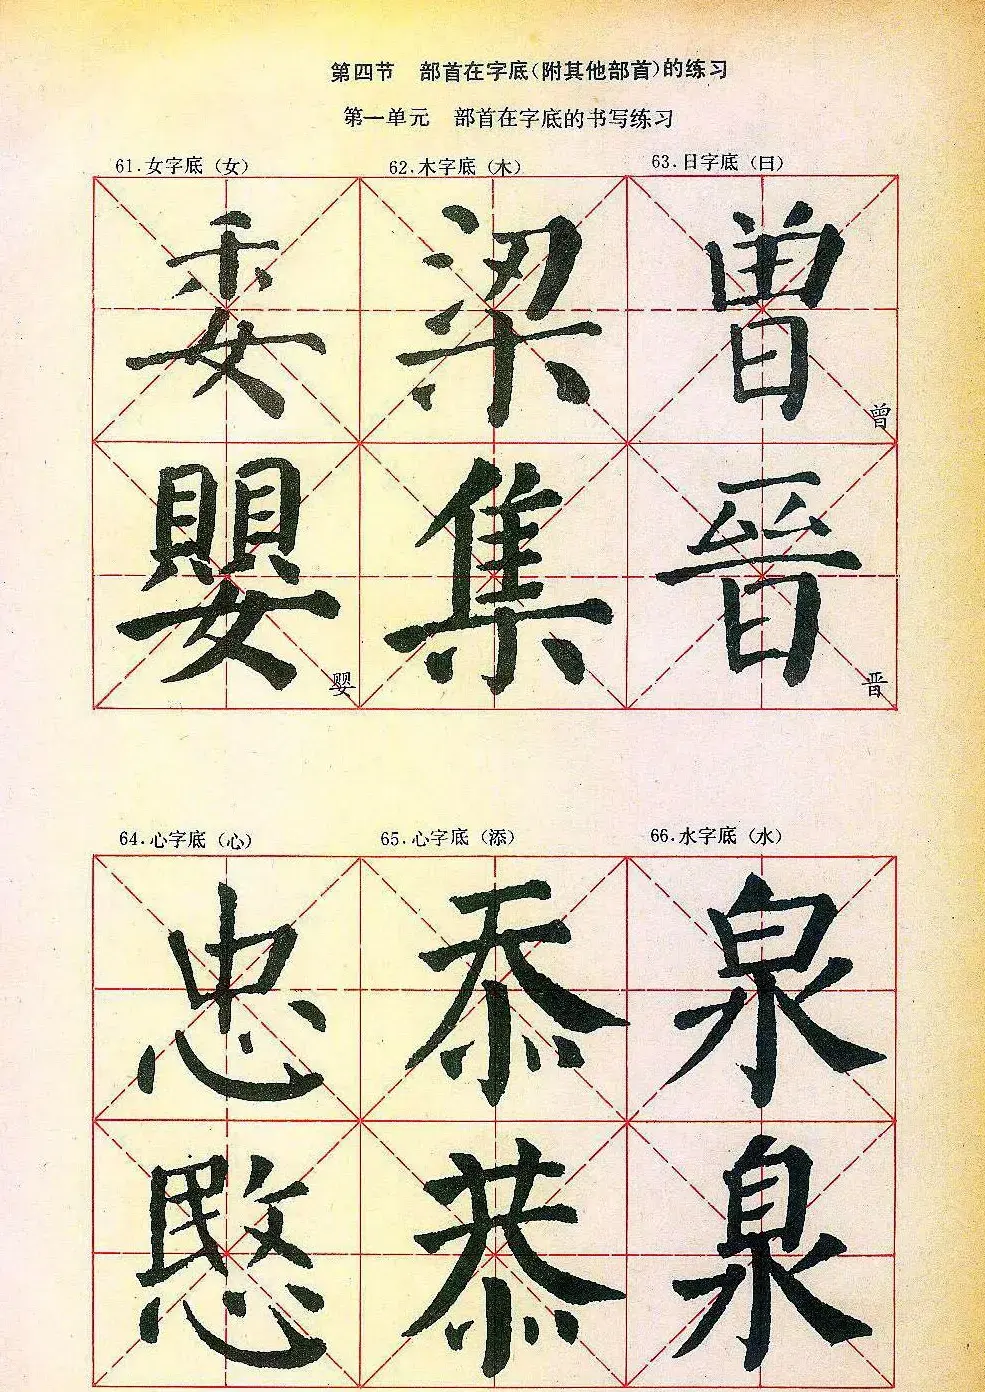 第四节 部首在字底(附其他部首)的练习
第一单元 部首在字底的书写练习
61.女字底(女) 62.木字底(木) 63.日字底(日)
委 梁 曾 曾
嬰 婴 集 晉 晋
64.心字底(心) 65.心字底(㣺) 66.水字底(水)
忠 忝 泉
愍 恭 泉